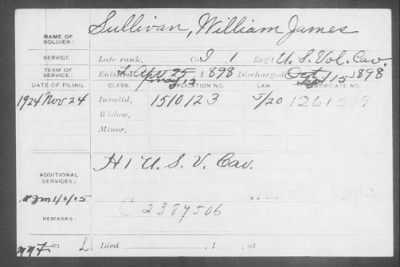 NAME OF SOLDIER: Sullivan, William James
SERVICE: Late rank, Co. I, 1 Reg't U.S. Vol. Cav.
TERM OF SERVICE: Enlisted Apr 25 1898 Discharged Oct 1898
May 12 Sept 15
DATE OF FILING. CLASS. APPLICATION NO. LAW CERTIFICATE NO.
1924 Nov 24 Invalid, 1510123 5/20
Widow,
Minor,
ADDITIONAL SERVICES: H 1 U. S. V. Cav.
C 2387506
REMARKS:
Died , 1 , at